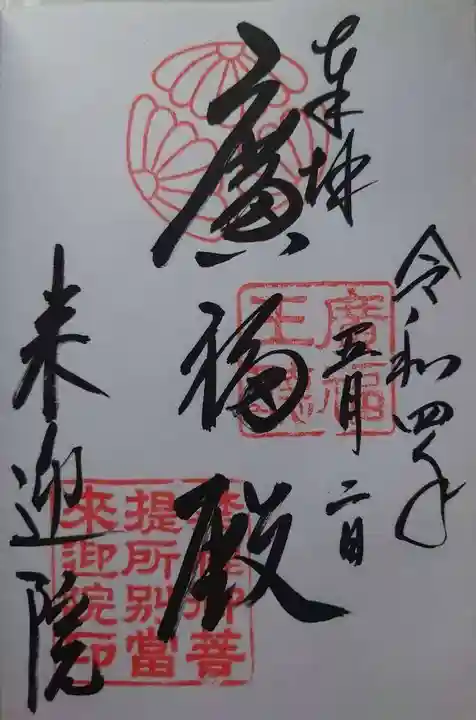 奉拝
令和四年
五月二日
廣福殿
来迎院
廣福
王
御菩
提所別當
來迎院印